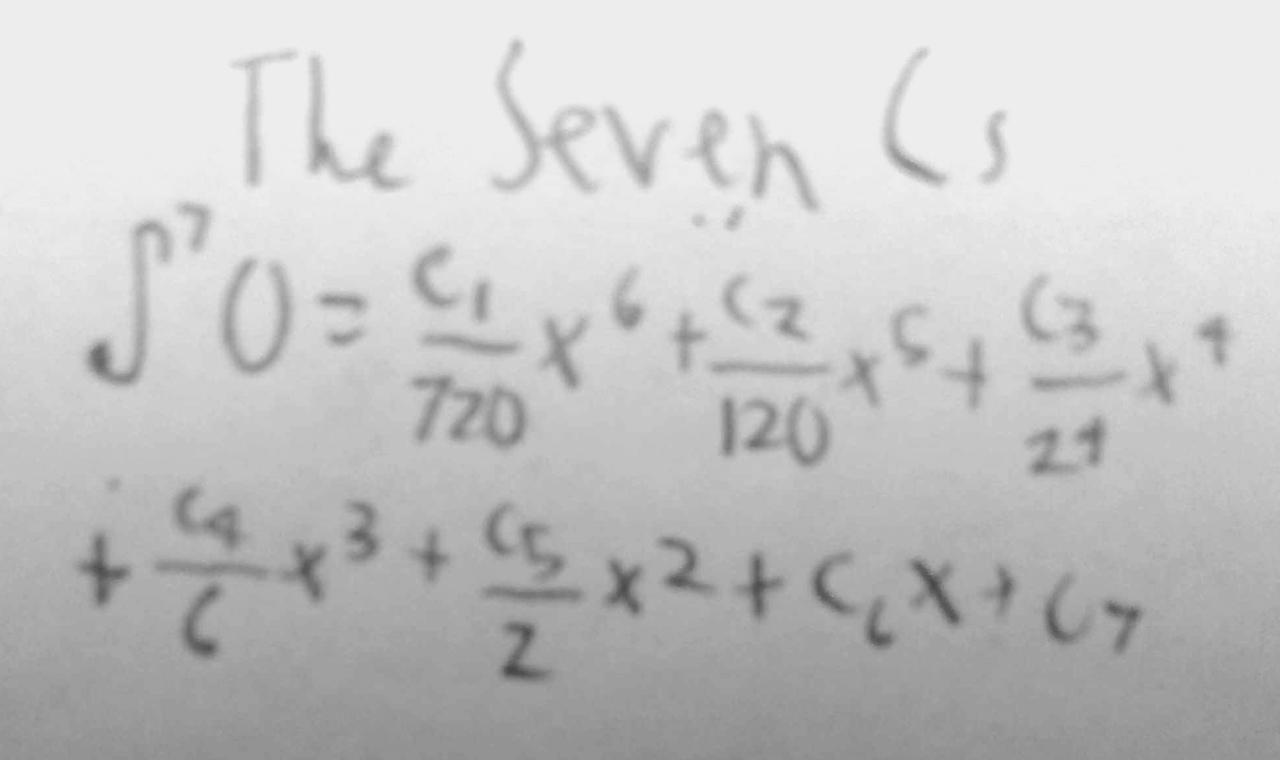 The Seven Cs
∫⁷0 = C₁/720 x⁶ + C₂/120 x⁵ + C₃/24 x⁴
+ C₄/6 x³ + C₅/2 x² + C₆x + C₇